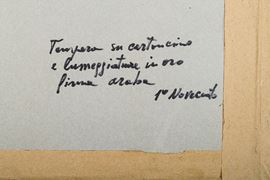 Tempera su cartoncino
e lumeggiature in oro
firma araba
1° Novecento